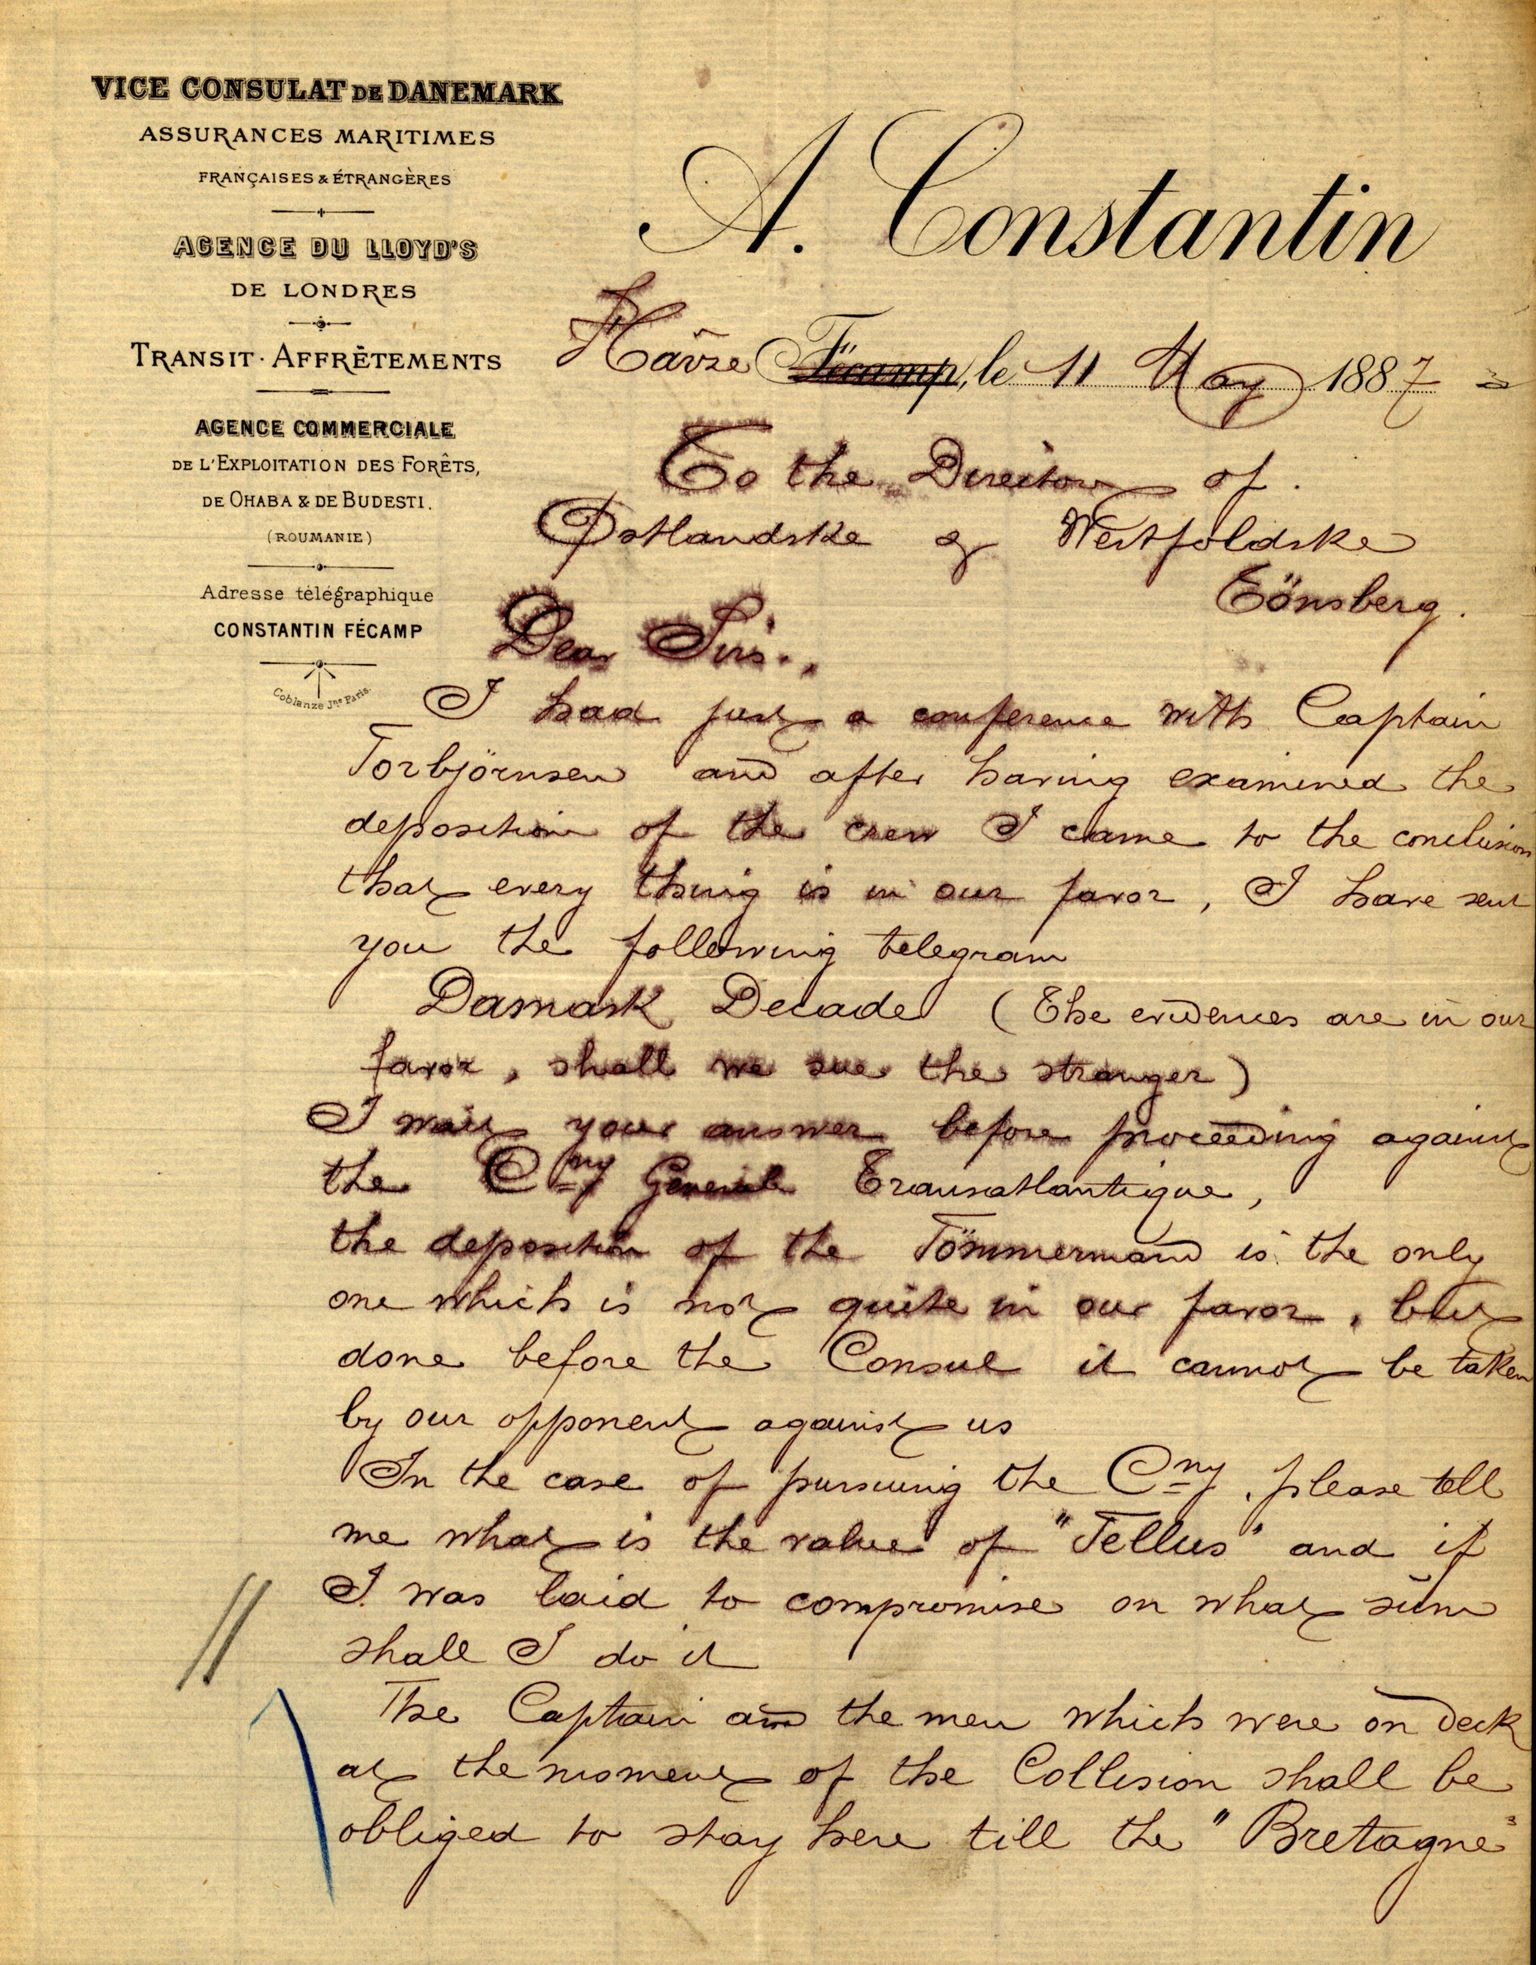 VICE CONSULAT DE DANEMARK
ASSURANCES MARITIMES
FRANÇAISES & ÉTRANGÈRES
AGENCE DU LLOYD'S
DE LONDRES
TRANSIT · AFFRÊTEMENTS
AGENCE COMMERCIALE
DE L'EXPLOITATION DES FORÊTS,
DE OHABA & DE BUDESTI.
(ROUMANIE)
Adresse télégraphique
CONSTANTIN FÉCAMP
Coblanze Jne Paris.
A. Constantin
Hâvre Fécamp, le 11 May 1887
To the Director of
Østlandske & Westfoldske
Tönsberg.
Dear Sirs.,
I had just a conference with Captain
Torbjörnsen and after having examined the
deposition of the crew I came to the conclusion
that every thing is in our favor, I have sent
you the following telegram
Damask Decade (The evidences are in our
favor, shall we sue the stranger)
I wait your answer before proceeding against
the Cny General Transatlantique,
the deposition of the Tömmermand is the only
one which is not quite in our favor, but
done before the Consul it cannot be taken
by our opponent against us
In the case of pursuing the Cny, please tell
me what is the value of "Tellus" and if
I was laid to compromise on what sum
shall I do it
The Captain and the men which were on deck
at the moment of the Collision shall be
obliged to stay here till the "Bretagne"